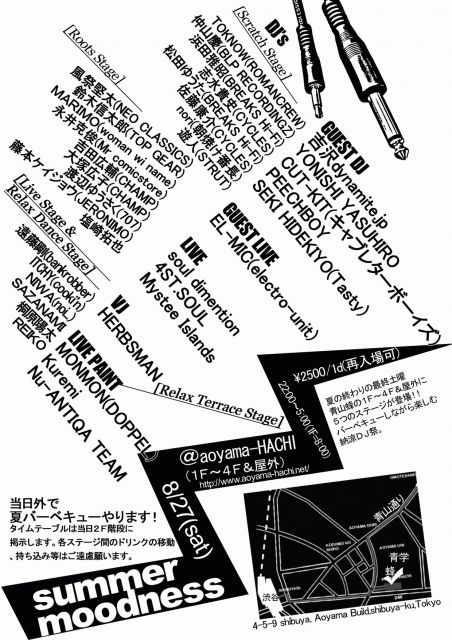 DJ's
[Scratch Stage]
TOKNOW(ROMANCREW)
仲山慶(BLP RECORDINGZ)
浜田雅昭(BREAKS Hi-Fi)
松田ゆうた(BREAKS Hi-Fi)
志人貴史(CYCLES)
佐藤康一(CYCLES)
nori!!
逆人(STRUT)
[Roots Stage]
風祭堅太(NEO CLASSICS)
鈴木信太郎(TOP GEAR)
MARIMO(woman wi name)
永井克俊(Mr. comicstore)
吉田広輔(CHAMP)
大塚広子(CHAMP)
渡辺ゆうさく(707)
藤本ケイショウ(JERONIMO)
塩崎拓也
[Live Stage &
Relax Dance Stage]
遠藤剛(barkrobber)
ITCHY(cookin)
NIWA(CoL)
SAZANAMI
桐原陽太
REIKO
GUEST DJ
吉沢dynamite.jp
YONISHI YASUHIRO
CUT-KIT(キャプレターボーイズ)
PEECHBOY
SEKI HIDEKIYO(Tasty)
GUEST LIVE
EL-MIC(electro-unit)
LIVE
soul dimention
4ST SOUL
Mystee Islands
VJ
HERBSMAN
LIVE PAINT
MONMON(DOPPEL)
Kuremi
Nu-ANTIQA TEAM
[Relax Terrace Stage]
¥2500/1d(再入場可)
22:00~5:00(1F~8:00)
夏の終わりの最終土曜
青山蜂の1F~4F&屋外に
5つのステージが登場!!
バーベキューしながら楽しむ
納涼DJ祭。
@aoyama-HACHI
(1F~4F&屋外)
http://www.aoyama-hachi.net/
8/27(sat)
当日外で
夏バーベキューやります!
タイムテーブルは当日2F階段に
掲示します。各ステージ間のドリンクの移動
、持ち込み等はご遠慮願います。
summer
moodness
OMOTESANDO
青山通り
AOYAMA DORI
KODOMO NO SHIRO
AOYAMA UNI.
青学
蜂
HACHI
渋谷
246
4-5-9 shibuya, Aoyama Build,shibuya-ku,Tokyo